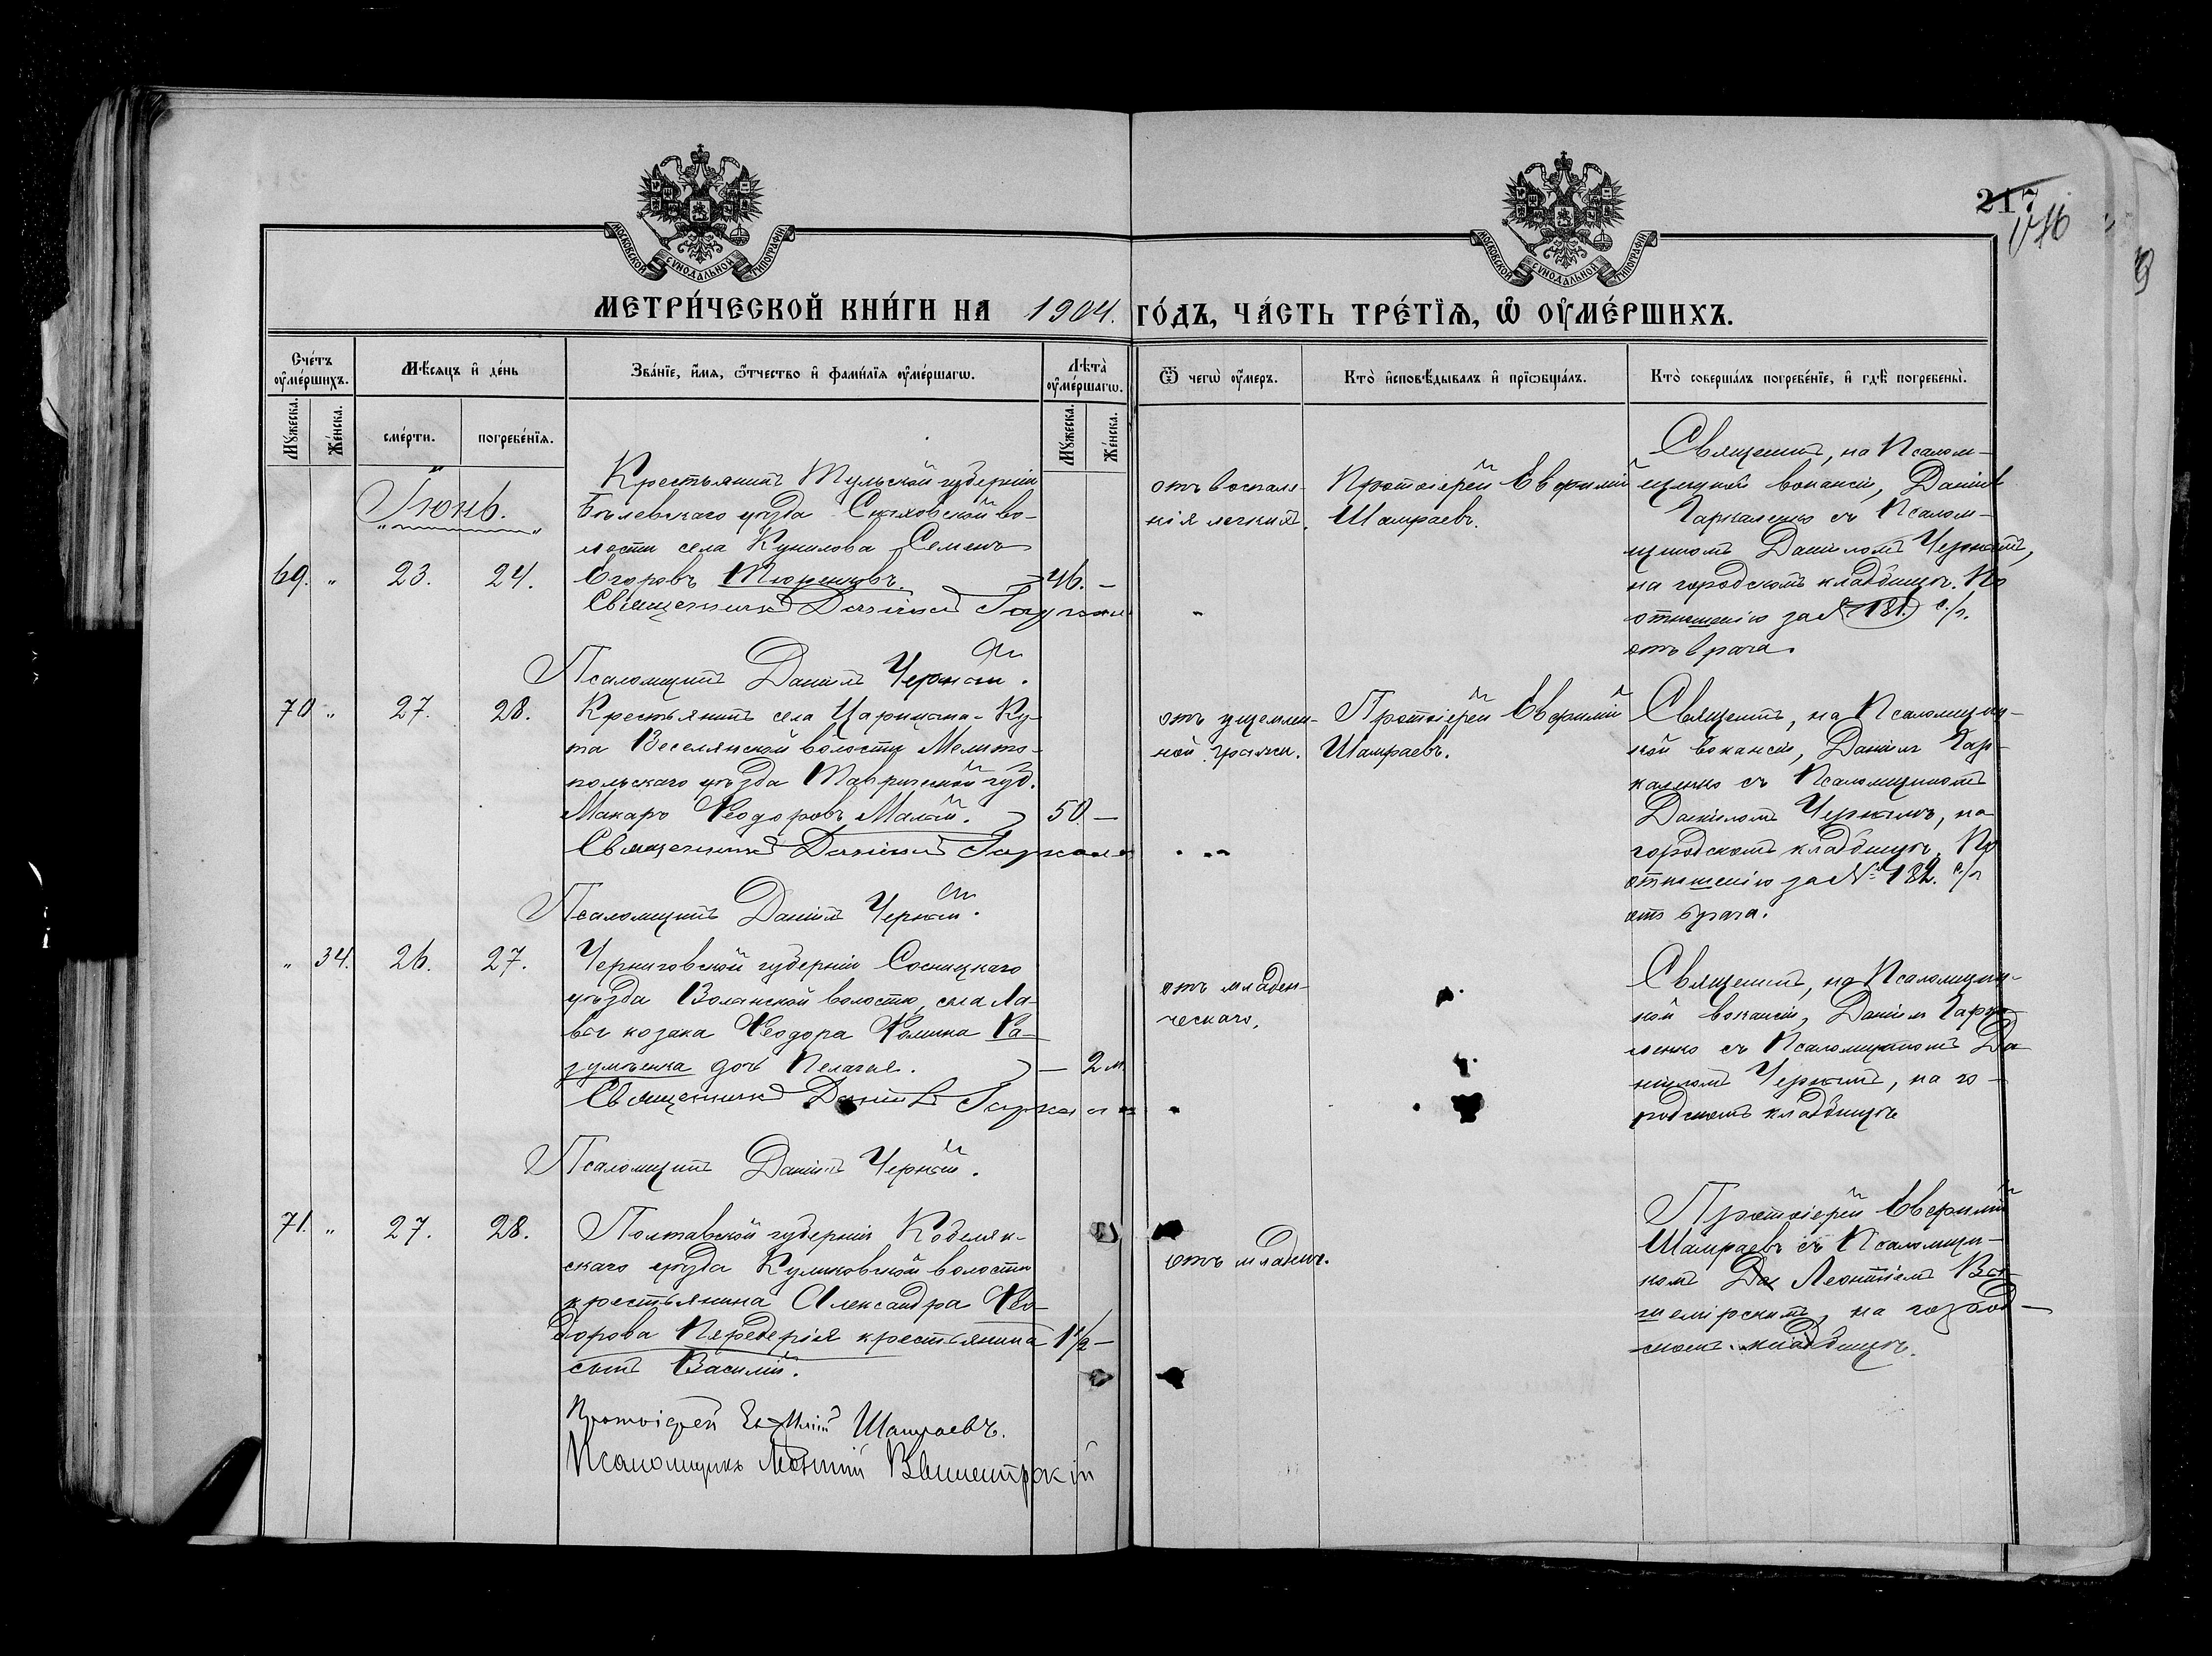 217
МОСКОВСКОЙ СУНОДАЛЬНОЙ ТИПОГРАФІИ
МОСКОВСКОЙ СУНОДАЛЬНОЙ ТИПОГРАФІИ
МЕТРИ́ЧЕСКОЙ КНИ́ГИ НА 1904. ГО́ДЪ, ЧА́СТЬ ТРЕ́ТЇѦ, Ѡ҆ ОУ҆МЕ́РШИХЪ.
Сче́тъ оу҆ме́ршихъ.
Мꙋжеска.
Же́нска.
Мѣ́сѧцъ и҆ де́нь
сме́рти.
погребе́нїѧ.
Зва́нїе, и҆́мѧ, ѻ҆́тчество и҆ фами́лїѧ оу҆ме́ршагѡ.
Лѣ́та оу҆ме́ршагѡ.
Мꙋжеска.
Же́нска.
Ѿ чегѡ̀ оу҆́меръ.
Кто̀ и҆сповѣ́дывалъ и҆ прїѡбща́лъ.
Кто̀ соверша́лъ погребе́нїе, и҆ гдѣ̀ погребены̀.
Іюнь.
69. " 23. 24.
Крестьянинъ Тульской губерніи
Бѣлевскаго уѣзда во-
лости села Семенъ
Егоровъ Тюренковъ. 46. –
Священникъ Даніилъ
Псаломщикъ Даніилъ Черный.
отъ воспале-
нія легкихъ.
Протоіерей Евфимій
Шамраевъ.
Священникъ, на Псалом-
щицкой вокансіи, Даніилъ
Гаркаленко съ Псалом-
щикомъ Даніиломъ Чернымъ,
на городскомъ кладбищѣ. По
отношенію за № 181. с/г.
отъ врача.
70 " 27. 28.
Крестьянинъ села Царицына-Ку-
та Веселянской волости Мелито-
польскаго уѣзда Таврической губ.
Макаръ Ѳеодоровъ Малый. 50 –
Священникъ Даніилъ
Псаломщикъ Даніилъ Черный.
отъ ущемлен-
ной грыжи.
Протоіерей Евфимій
Шамраевъ.
Священникъ, на Псаломщиц-
кой вокансіи, Даніилъ Гар-
каленко съ Псаломщикомъ
Даніиломъ Чернымъ, на
городскомъ кладбищѣ. По
отношенію за № 182. с/г
отъ врача.
" 34. 26. 27.
Черниговской губерніи Сосницкаго
уѣзда Волынской волости, села Ла-
вы козака Ѳеодора Ѳомина Ра-
зумѣенка дочь Пелагія. – 2 м.
Священникъ Даніилъ
Псаломщикъ Даніилъ Черный.
отъ младен-
ческаго.
Священникъ, на Псаломщиц-
кой вокансіи, Даніилъ Гарка-
ленко съ Псаломщикомъ Да-
ніиломъ Чернымъ, на го-
родскомъ кладбищѣ
71. " 27. 28.
Полтавской губерніи Кобеляк-
скаго уѣзда Куликовской волости
крестьянина Александра Ѳео-
дорова Передерія крестьянина 1½ –
сынъ Василій.
Протоіерей Евфимій Шамраевъ.
Псаломщикъ Леонтій
отъ младенч.
Протоіерей Евфимій
Шамраевъ съ Псаломщи-
комъ Да Леонтіемъ
на город-
скомъ кладбищѣ.